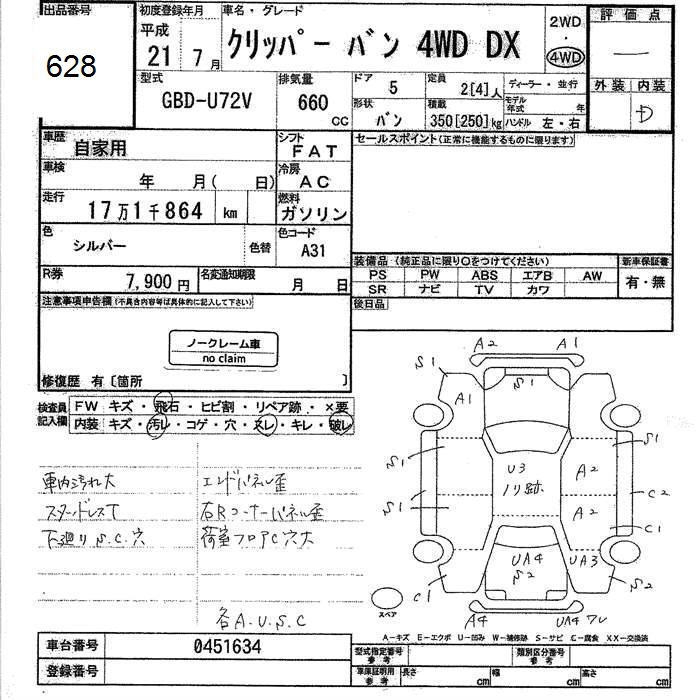 出品番号
628
初度登録年月
平成
21 7月
車名・グレード
クリッパー バン 4WD DX
2WD
・
4WD
評価点
―
外装 内装
D
型式
GBD-U72V
排気量
660
CC
ドア
5
定員
2[4]人
ディーラー・並行
形状
バン
積載
350[250]kg
モデル年式 年
ハンドル 左・右
車歴
自家用
シフト
FAT
車検
年 月( 日)
冷房
AC
走行
17万1千864 km
燃料
ガソリン
色
シルバー
色替
色コード
A31
R券
7,900円
名変通知期限
月 日
セールスポイント(正常に機能するものに限ります)
装備品(純正品に限り○をつけてください)
PS PW ABS エアB AW
SR ナビ TV カワ
新車保証書
有・無
後日品
注意事項申告欄(不具合内容等は具体的に記入して下さい)
ノークレーム車
no claim
修復歴 有〔箇所 〕
検査員記入欄
FW キズ・飛石・ヒビ割・リペア跡・×要
内装 キズ・汚レ・コゲ・穴・スレ・キレ・破レ
車内汚れ大 エンドパネル歪
スタッドレスT 右Rコーナーパネル歪
下廻りS.C.穴 荷室フロアC穴大
各A.U.S.C
A2 A1
S1 S1
A1
S1 S1
U3 A2
ノリ跡 C2
S1 A2
C1
UA4 UA3
S2 S2
C1
スペア
A4 UA4ワレ
A-キズ E-エクボ U-凹み W-補修跡 S-サビ C-腐食 XX-交換済
車台番号 0451634
登録番号
型式指定番号
参考
類別区分番号
参考
車庫証明用
参考
長さ cm 幅 cm 高さ cm